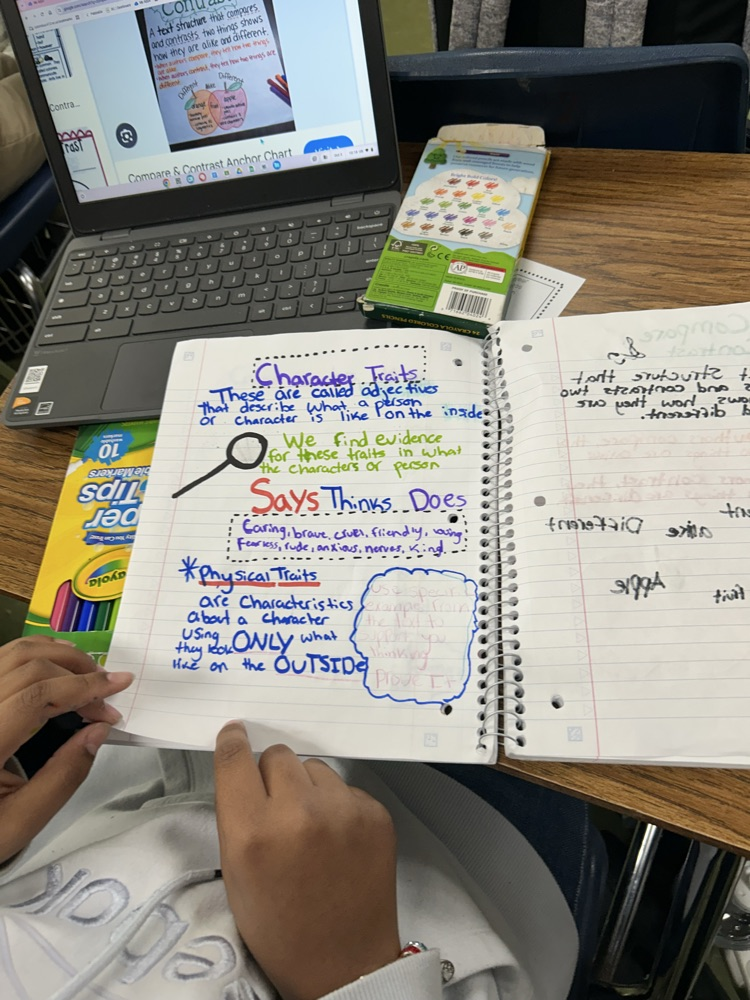 A text structure that compares
and contrasts, two things shows
how they are alike and different.
different
Different
Alike
Different
orange
apple
Compare & Contrast Anchor Chart
Bright Bold Colors
AP
24 CRAYOLA COLORED PENCILS
10
Tips
Crayola
Character Traits
These are called adjectives
that describe what a person
or character is like on the inside
We find evidence
for these traits in what
the characters or person
Says Thinks Does
Caring, brave, cruel, friendly, loving
Fearless, rude, anxious, nerves, kind.
*Physical Traits
are Characteristics
about a character
using ONLY what
they look
like on the OUTSIDE
use specific
example from
the text to
support you
thinking
Prove It
Compare
Contrast
structure that
and contrasts two
shows how they are
different.
Different
alike
Apple
fruit